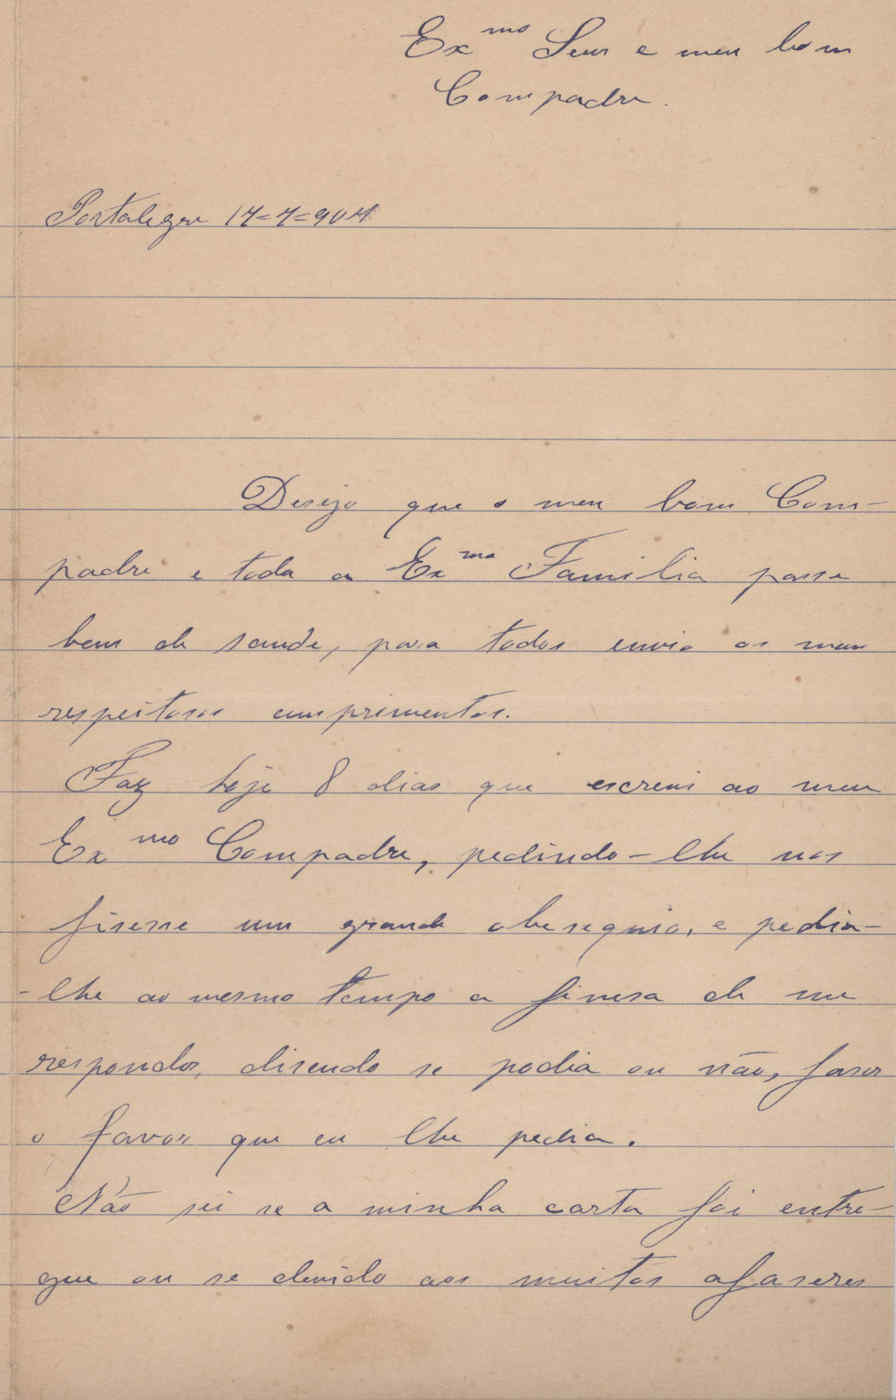 Ex.mo Senr e meu bom
Compadre.
Portalegre 17=7=904
Desejo que o meu bom Com-
padre e toda a Ex.ma Familia passe
bem de saude, para todos envio os meus
respeitosos cumprimentos.
Faz hoje 8 dias que escrevi ao meu
Ex.mo Compadre, pedindo-lhe nos
fisesse um grande obsequio, e pedia-
-lhe ao mesmo tempo a finesa de me
responder, disendo se podia ou não, faser
o favor que eu lhe pedia.
Não sei se a minha carta foi entre-
gue ou se devido aos muitos afaseres